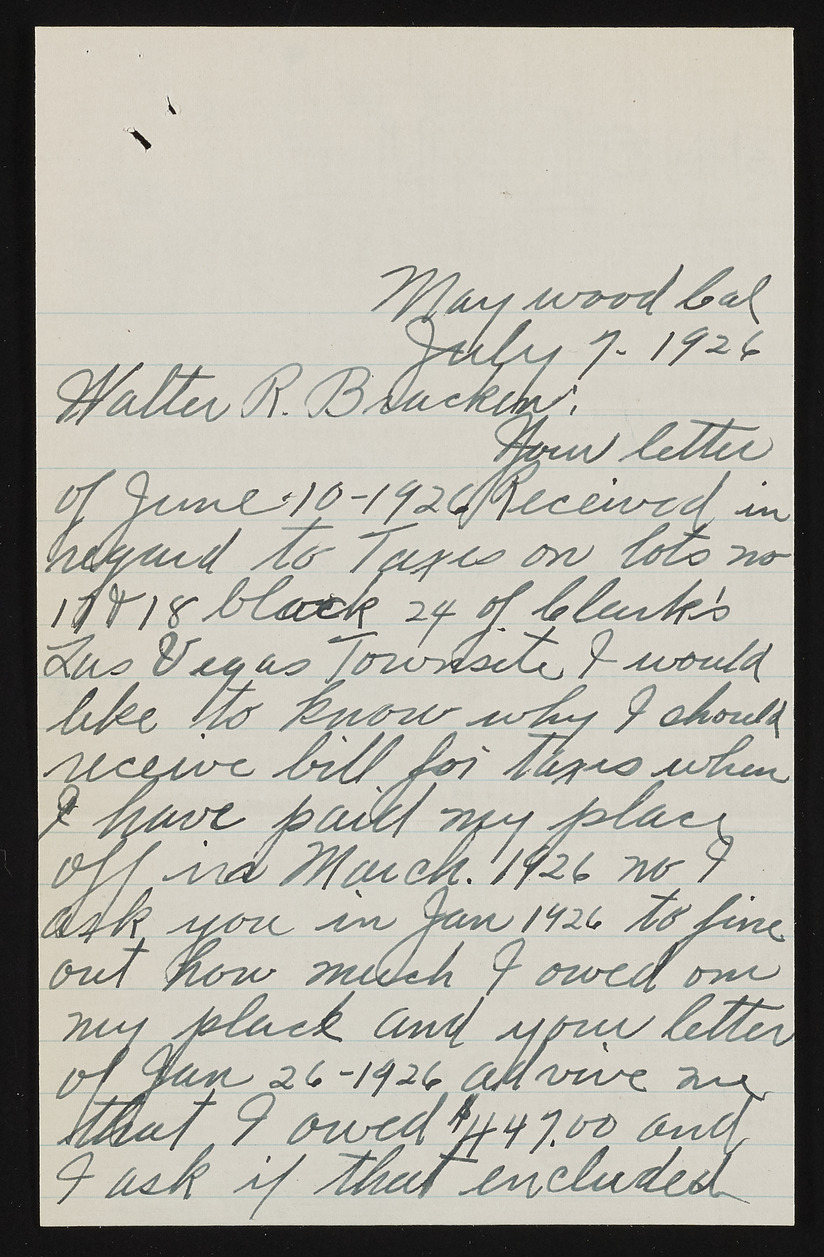 Maywood Cal
July 7. 1926
Walter R. Bracken:
Your letter
of June 10-1926 Received in
regard to Taxes on lots no
17 & 18 block 24 of Clark's
Las Vegas Townsite I would
like to know why I should
receive bill for taxes when
I have paid my place
off in March. 1926 no I
ask you in Jan 1926 to fine
out how much I owed on
my place and your letter
of Jan 26-1926 advive me
that I owed $447.00 and
I ask if that encluded